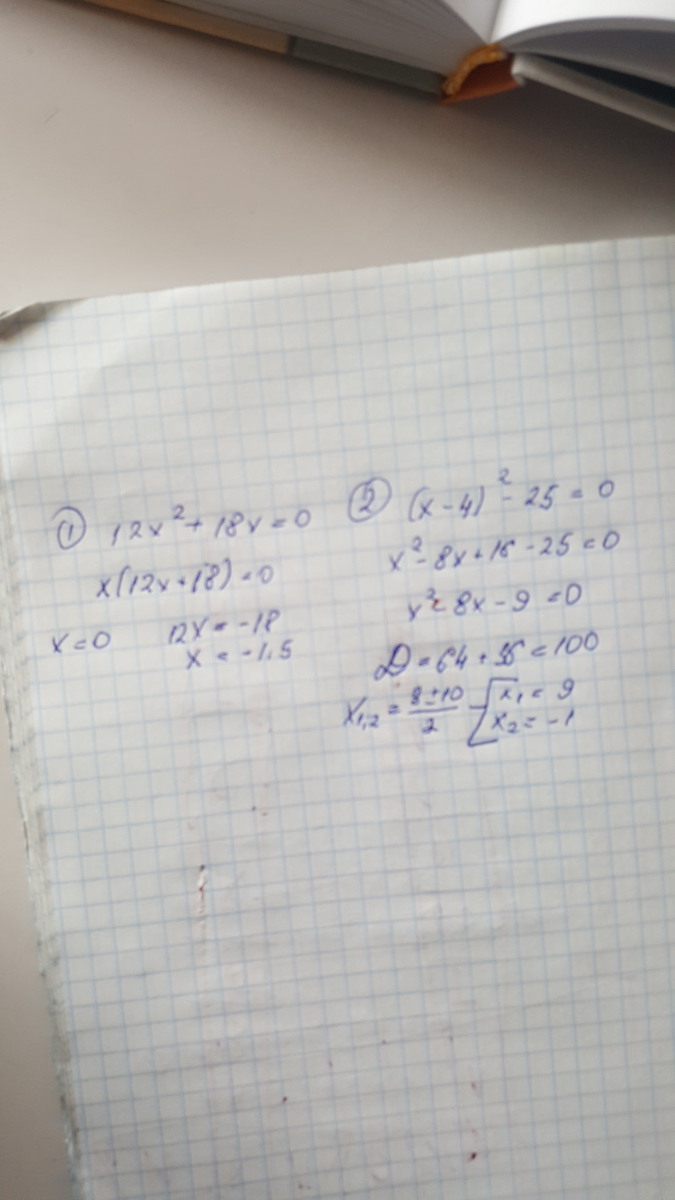 ① 12x² + 18x = 0
x(12x + 18) = 0
x = 0 12x = -18
x = -1,5
② (x - 4)² - 25 = 0
x² - 8x + 16 - 25 = 0
x² - 8x - 9 = 0
D = 64 + 36 = 100
x₁,₂ = (8 ± 10)/2 [ x₁ = 9
x₂ = -1